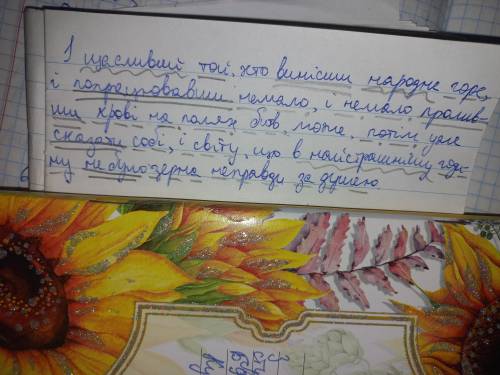 І щасливий той, хто винісши народне горе,
і попрацювавши немало, і немало пролив-
ши крові на полях боїв, може, потім уже
сказати собі, і світу, що в найстрашнішу годи-
ну не було зерна неправди за душею